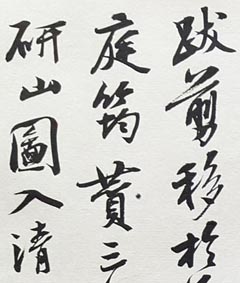 跋剪移於
庭筠賁三
研山圖入清